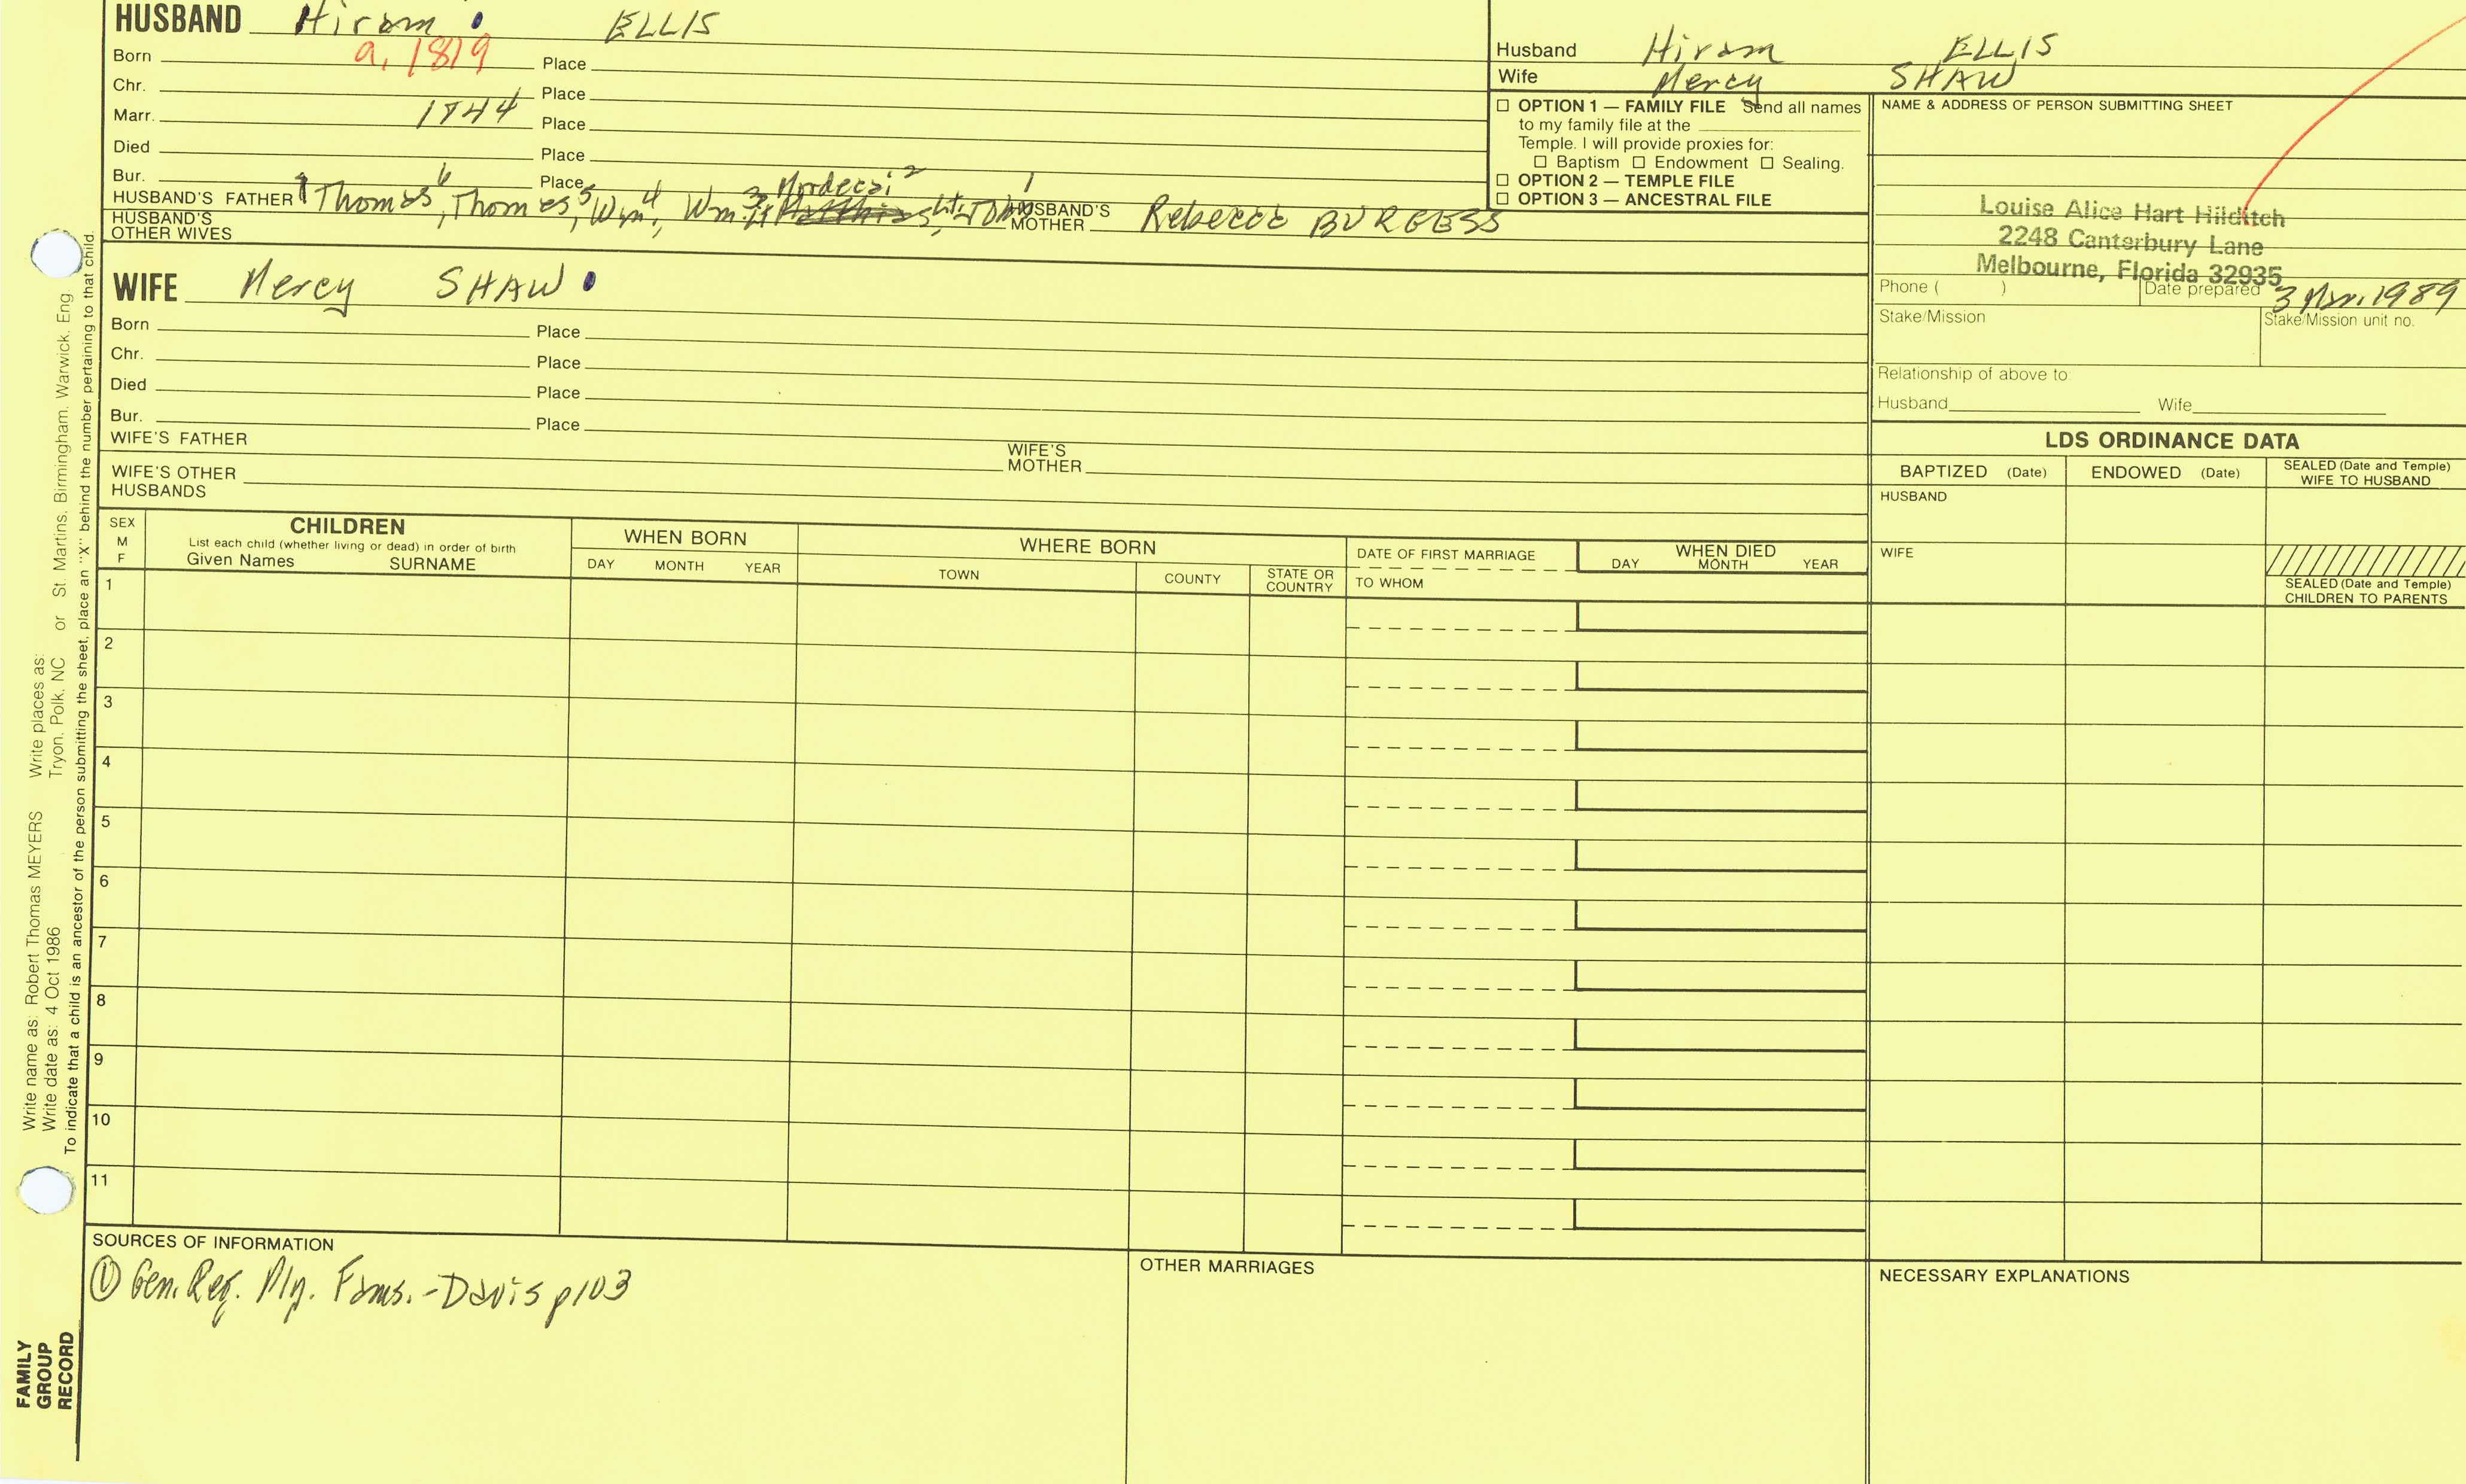 HUSBAND Hiram ELLIS
Born a. 1819 Place
Chr. Place
Marr. 1844 Place
Died Place
Bur. Place
HUSBAND'S FATHER Thomas⁶, Thomas⁵, Wm⁴, Wm³ Mordecai² Lt. John¹ HUSBAND'S MOTHER Rebecca BURGESS
HUSBAND'S OTHER WIVES
WIFE Mercy SHAW
Born Place
Chr. Place
Died Place
Bur. Place
WIFE'S FATHER WIFE'S MOTHER
WIFE'S OTHER HUSBANDS
Husband Hiram ELLIS
Wife Mercy SHAW
☐ OPTION 1 — FAMILY FILE Send all names
to my family file at the
Temple. I will provide proxies for:
☐ Baptism ☐ Endowment ☐ Sealing.
☐ OPTION 2 — TEMPLE FILE
☐ OPTION 3 — ANCESTRAL FILE
NAME & ADDRESS OF PERSON SUBMITTING SHEET
Louise Alice Hart Hilditch
2248 Canterbury Lane
Melbourne, Florida 32935
Phone ( ) Date prepared 3 Mar. 1989
Stake/Mission Stake/Mission unit no.
Relationship of above to:
Husband Wife
LDS ORDINANCE DATA
BAPTIZED (Date) ENDOWED (Date) SEALED (Date and Temple) WIFE TO HUSBAND
HUSBAND
WIFE
SEALED (Date and Temple) CHILDREN TO PARENTS
SEX M F
CHILDREN
List each child (whether living or dead) in order of birth
Given Names SURNAME
WHEN BORN
DAY MONTH YEAR
WHERE BORN
TOWN COUNTY STATE OR COUNTRY
DATE OF FIRST MARRIAGE
TO WHOM
WHEN DIED
DAY MONTH YEAR
1
2
3
4
5
6
7
8
9
10
11
SOURCES OF INFORMATION
① Gen. Reg. Ply. Fams. - Davis p103
OTHER MARRIAGES
NECESSARY EXPLANATIONS
Write name as: Robert Thomas MEYERS Write places as:
Write date as: 4 Oct 1986 Tryon, Polk, NC or St. Martins, Birmingham, Warwick, Eng
To indicate that a child is an ancestor of the person submitting the sheet, place an "X" behind the number pertaining to that child.
FAMILY
GROUP
RECORD